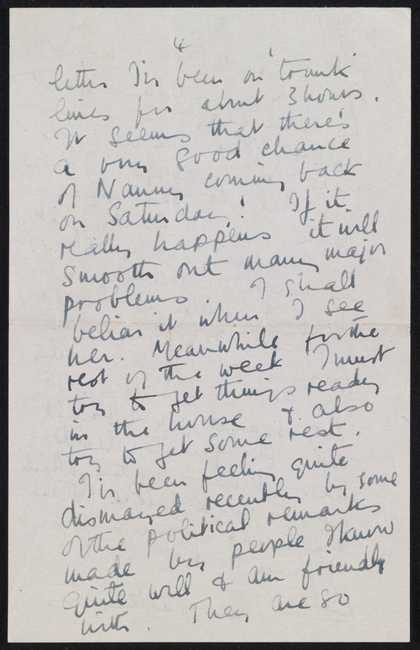 4
letter I've been on 'trunk'
lines for about 3 hours.
It seems that there's
a very good chance
of Nanny coming back
on Saturday! If it
really happens it will
smooth out many major
problems I shall
beliav it when I see
her. Meanwhile for the
rest of the week I must
try to get things ready
in the house & also
try to get some rest.
I've been feeling quite
dismayed recently by some
of the political remarks
made by people I know
quite well & am friendly
with. They are so